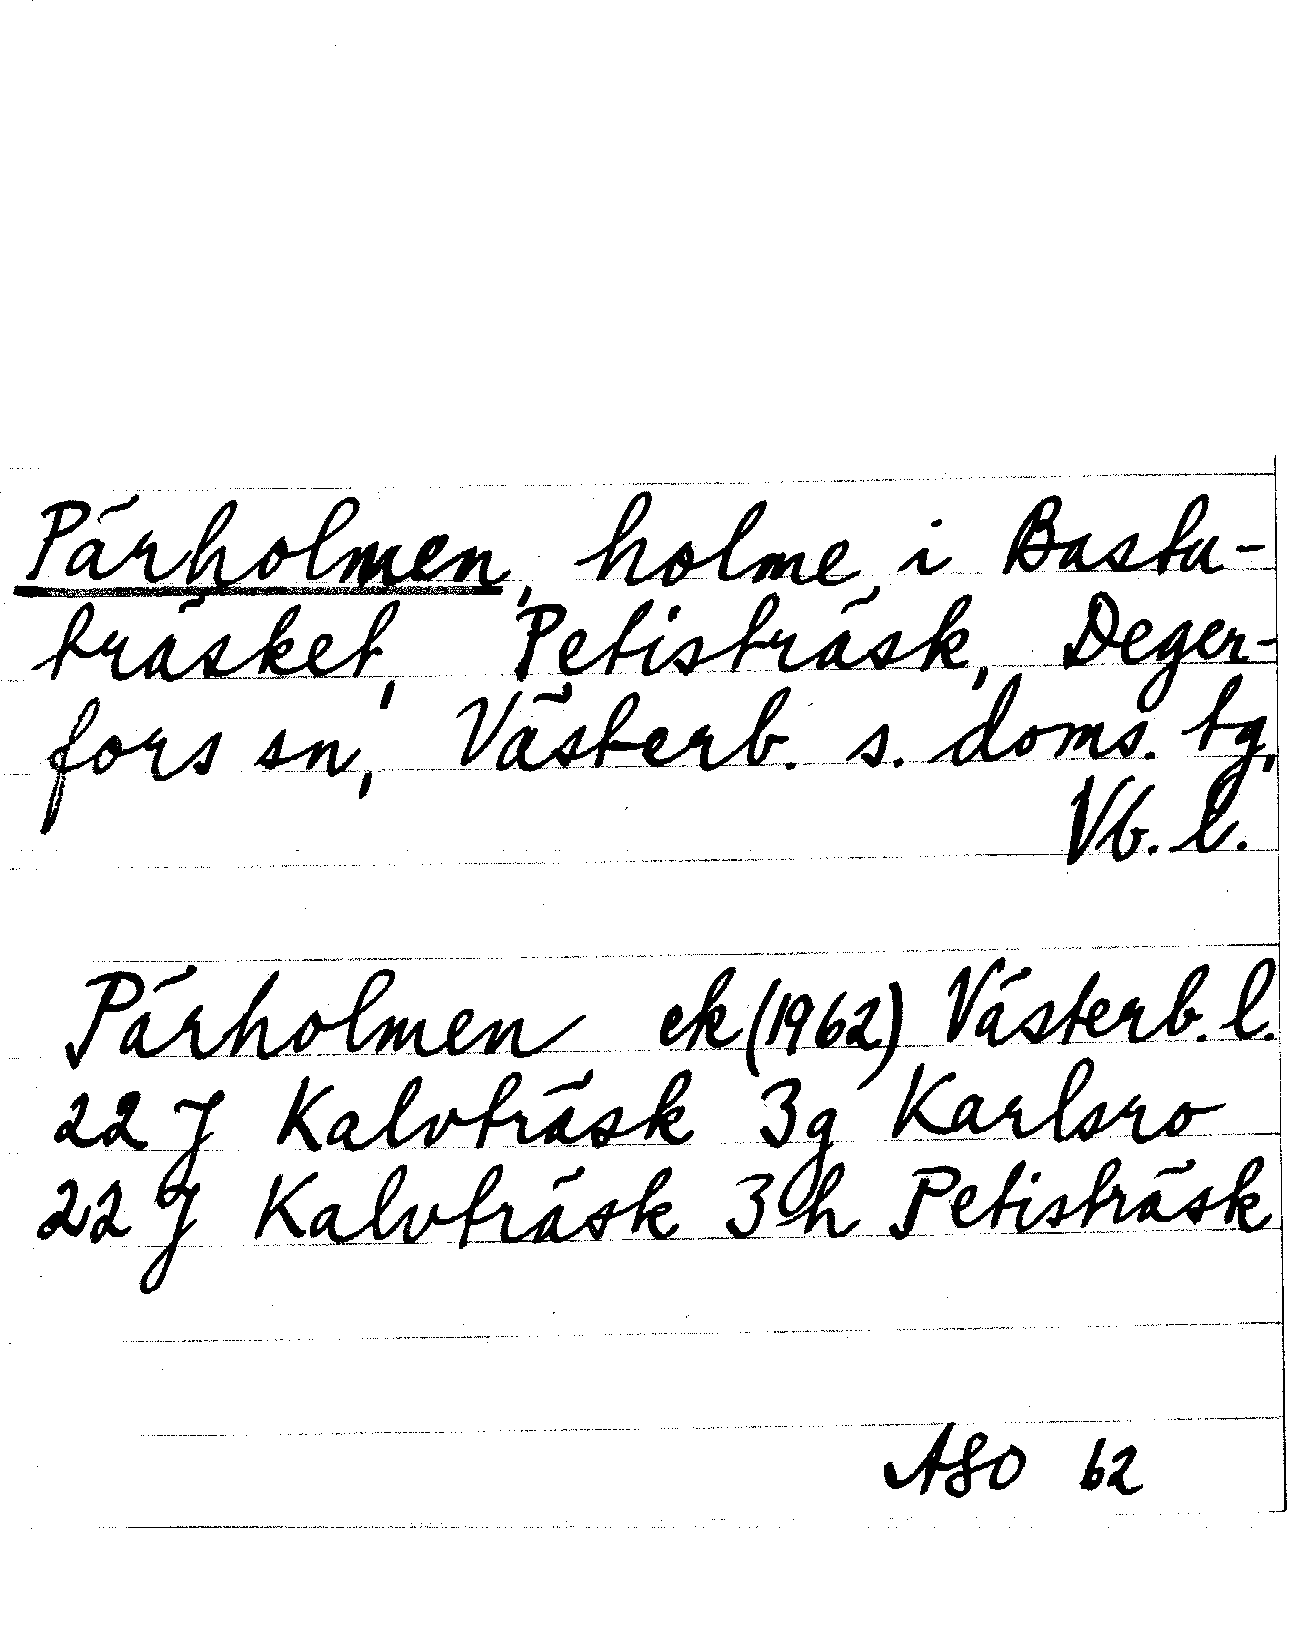 Pärholmen, holme i Bastu-
träsket, Petisträsk, Deger-
fors sn, Västerb. s. doms. tg,
Vb. l.
Pärholmen ek (1962) Västerb. l.
22 J Kalvträsk 3g Karlsro
22 J Kalvträsk 3h Petisträsk
ASO 62